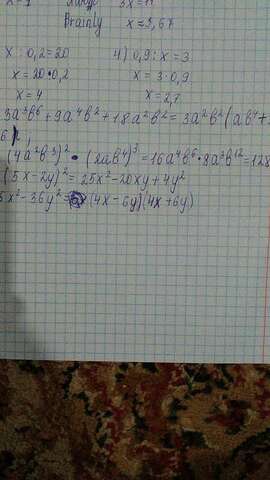 3x=11
Brainly x=3,67
x:0,2=20 4) 0,9:x=3
x=20·0,2 x=3·0,9
x=4 x=2,7
3a³b⁶+9a⁴b²+18a²b²=3a²b²(ab⁴+
6)
(4a²b³)²·(2ab⁴)³=16a⁴b⁶·8a³b¹²=128
(5x-2y)²=25x²-20xy+4y²
x²-36y²= (4x-6y)(4x+6y)